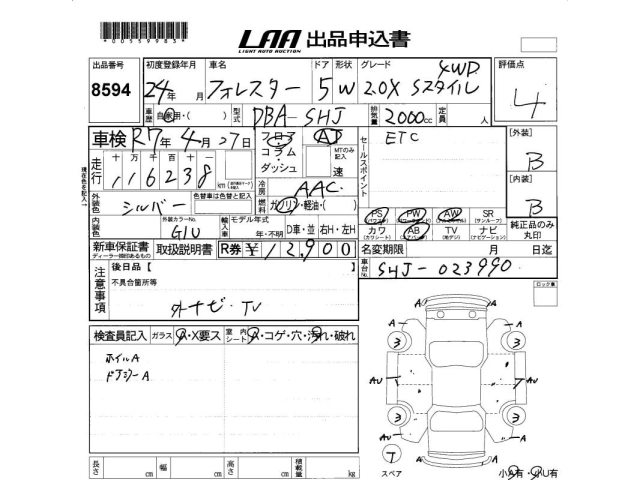 *00559983*
LAA 出品申込書
LIGHT AUTO AUCTION
出品番号 初度登録年月 車名 ドア 形状 グレード 評価点
8594 24年 月 フォレスター 5 W 2.0X Sスタイル 4WD 4
車歴 自家用・( ) 型式 DBA-SHJ 排気量 2000cc 定員 人
車検 R7年 4月 27日 フロア コラム・ダッシュ AT
MTのみ記入 速
セールスポイント ETC
[外装] B
[内装] B
純正品のみ丸印
走行 十 万 千 百 十 一
116238 km
冷房 AAC
燃料 ガソリン・軽油・( )
外装色 シルバー 色替車は色替と記入
内装色 外装カラーNo. G1U
輸入車 モデル年式 年・不明 D車・並 右H・左H
PS PW AW SR
(パワステ) (パワーウィンド) (アルミホイール) (サンルーフ)
カワ AB TV ナビ
(カワシート) (エアバッグ) (地デジ) (ナビゲーション)
新車保証書 取扱説明書 R券 ¥12,900
ディーラー捺印あるもの
名変期限 月 日迄
車台No. SHJ-023990
注意事項 後日品【 】
不具合箇所等
外ナビ・TV
ロック車
検査員記入 ガラス A・X要ス 室内シート A・コゲ・穴・汚れ・破れ
ホイルA
ドアミラーA
A A
3 3
AU AU
3 3
A A
T
スペア
小A有・小U有
長さ cm 幅 cm 高さ cm 積載量 kg